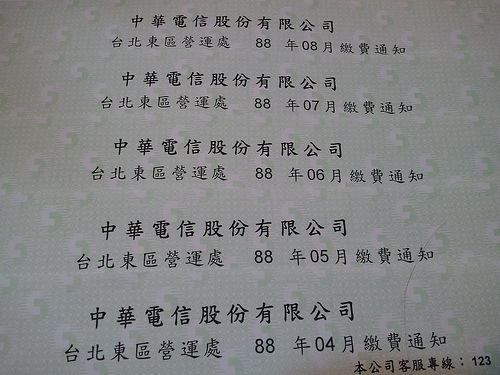 中華電信股份有限公司
台北東區營運處 88 年08月繳費通知
中華電信股份有限公司
台北東區營運處 88 年07月繳費通知
中華電信股份有限公司
台北東區營運處 88 年06月繳費通知
中華電信股份有限公司
台北東區營運處 88 年05月繳費通知
中華電信股份有限公司
台北東區營運處 88 年04月繳費通知
本公司客服專線：123